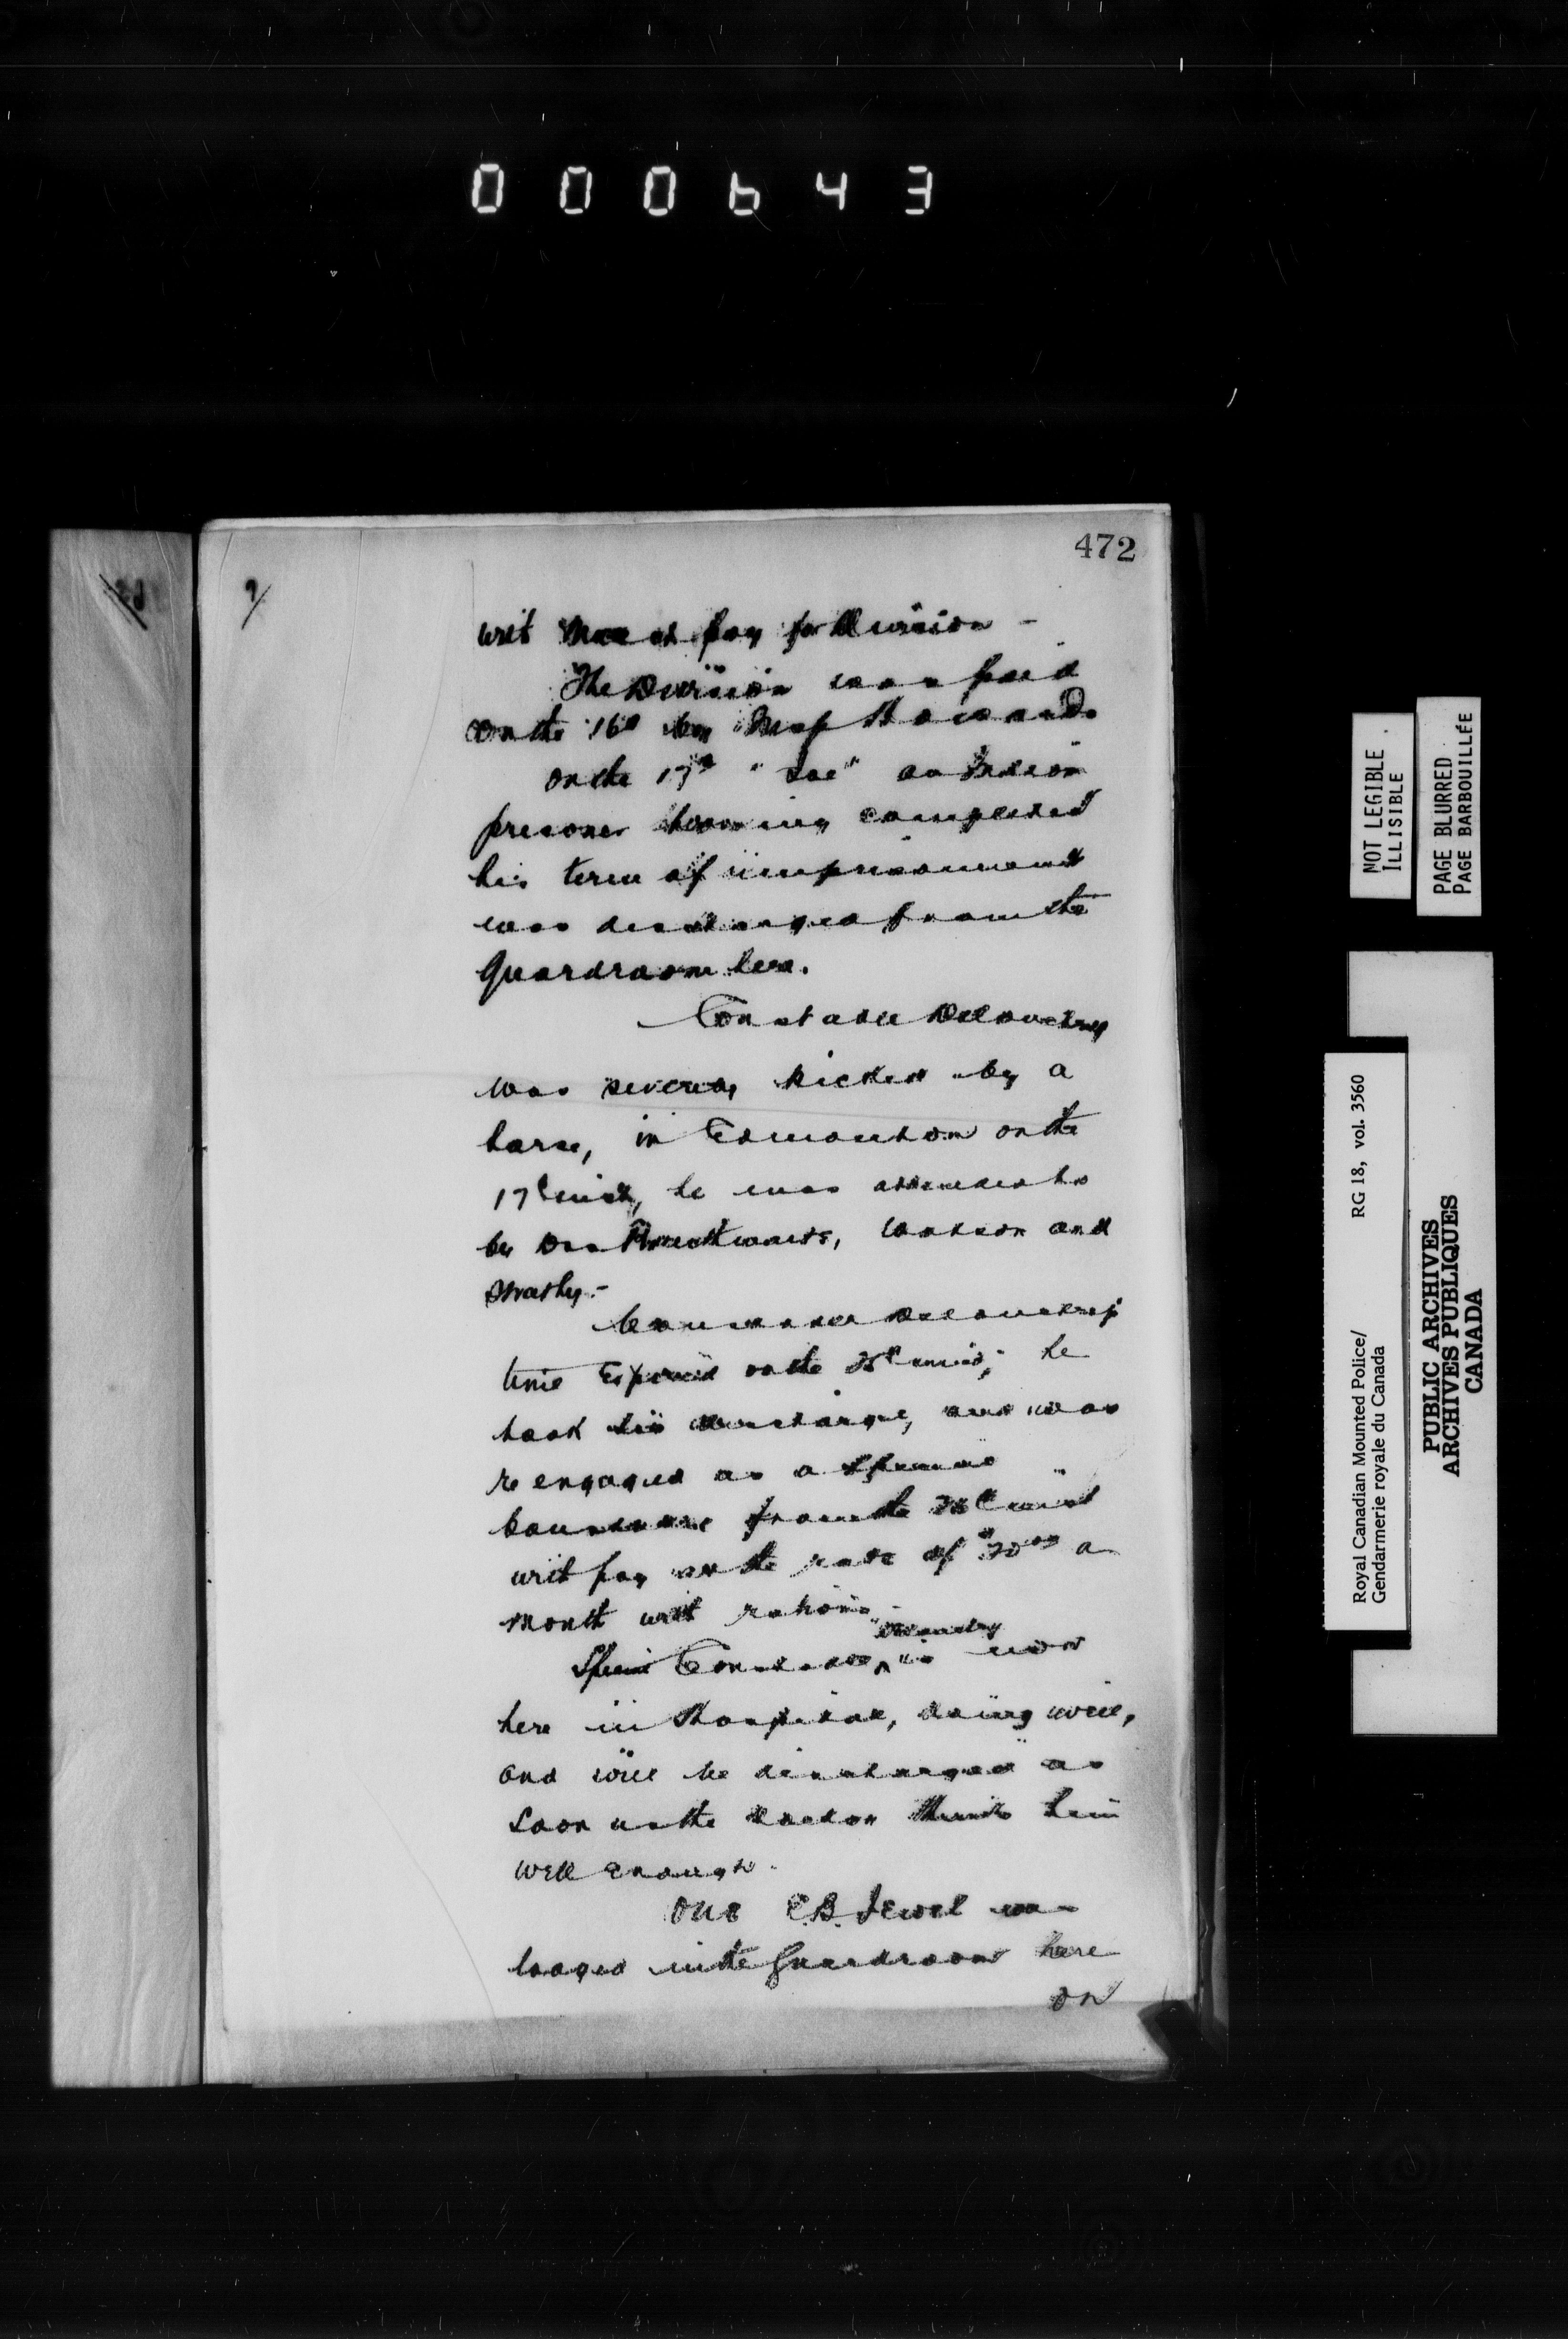 000643
472
9/
with March pay for Division -
The Division was paid
on the 16th by Insp
On the 17th "Joe" an Indian
prisoner having completed
his term of imprisonment
was discharged from the
Guardroom here.
Constable
was severely kicked by a
horse, in Edmonton on the
17th inst, he was attended to
by Drs Braithwaite, and
Constable
time expired on the inst, he
took his discharge, and was
re engaged as a Special
Constable from the inst
with pay at the rate of a
month with rations -
Special Constable is now
here in Hospital, doing well,
and will be discharged as
soon as the doctor thinks him
well enough.
One C.B. Jewel was
lodged in the Guardroom here
on
NOT LEGIBLE
ILLISIBLE
PAGE BLURRED
PAGE BARBOUILLÉE
Royal Canadian Mounted Police/ RG 18, vol. 3560
Gendarmerie royale du Canada
PUBLIC ARCHIVES
ARCHIVES PUBLIQUES
CANADA